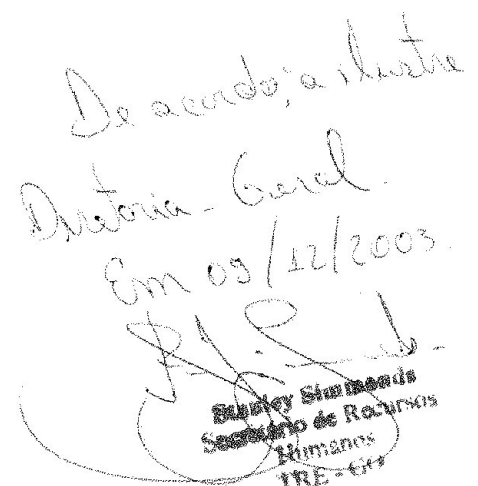 De acordo; a ilustre
Diretoria-Geral.
Em 09/12/2003.
Stanley Simmonds
Secretário de Recursos
Humanos
TRE -